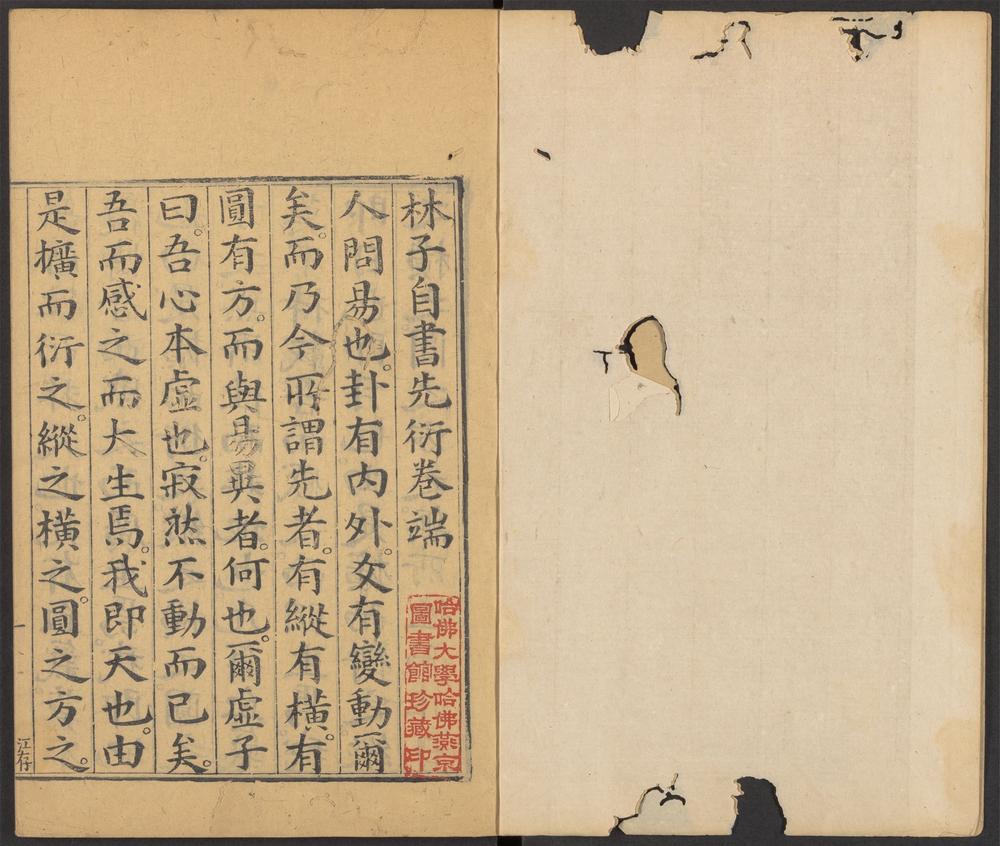 林子自書先衍卷端
人問易也。卦有內外。爻有變動爾
矣。而乃今所謂先者。有縱有橫。有
圓有方。而與易異者。何也。爾虛子
曰。吾心本虛也。寂然不動而已矣。
吾而感之而大生焉。我即天也。由
是擴而衍之。縱之橫之。圓之方之。
江存
哈佛大學哈佛燕京
圖書館珍藏印